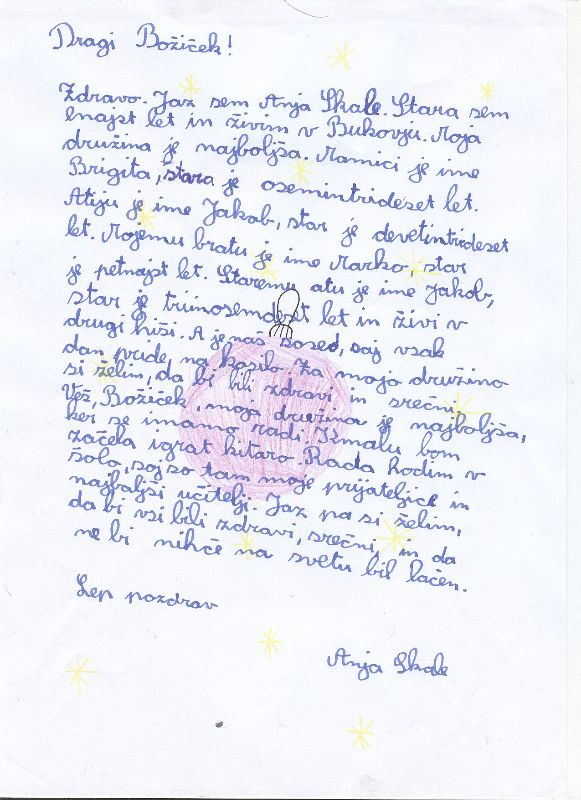 Dragi Božiček!
Zdravo. Jaz sem Anja Skale. Stara sem
enajst let in živim v Bukovju. Moja
družina je najboljša. Mamici je ime
Brigita, stara je osemintrideset let.
Atiju je ime Jakob, star je devetintrideset
let. Mojemu bratu je ime Marko, star
je petnajst let. Staremu atu je ime Jakob,
star je triinosemdeset let in živi v
drugi hiši. A je naš sosed, saj vsak
dan pride na kosilo. Za mojo družino
si želim, da bi bili zdravi in srečni.
Veš, Božiček, moja družina je najboljša,
ker se imamo radi. Kmalu bom
začela igrat kitaro. Rada hodim v
šolo, saj so tam moje prijateljice in
najbaljši učitelji. Jaz pa si želim,
da bi vsi bili zdravi, srečni, in da
ne bi nihče na svetu bil lačen.
Lep pozdrav
Anja Skale